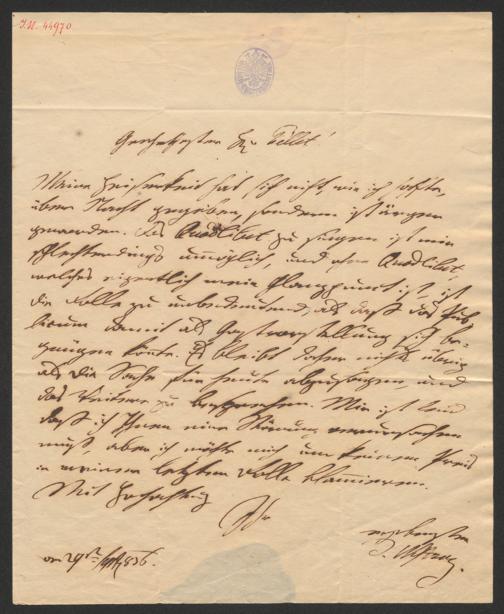 I.N. 44970
Geehrtester Hr. Tillet!
Meine Heiserkeit hat sich nicht, wie ich hoffte,
über Nacht gegeben, sondern ist ärger
geworden. Das Quodlibet zu singen ist mir
schlechterdings unmöglich, und ohne Quodlibet,
welches eigentlich mein Glanzpunct ist, ist
die Rolle zu unbedeutend, als daß das Pub-
licum damit als Gastvorstellung sich be-
gnügen könte. Es bleibt daher nichts übrig
als die Sache für heute abzusagen und
das Weitere zu besprechen. Mir ist leid
daß ich Ihnen eine Störung verursachen
muß, aber ich möchte mich um keinen Preis
in meiner letzten Rolle blamieren.
Mit Hochachtung
Ihr
ergebenster
J. Nestroy.
am 29ten 836.